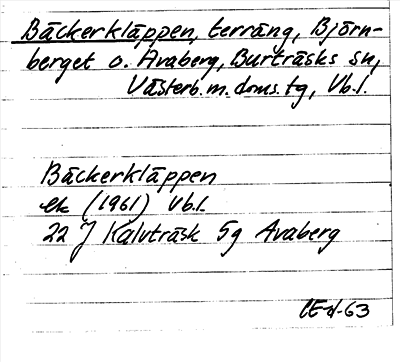 Bäckerkläppen, terräng, Björn-
berget o. Avaberg, Burträsks sn,
Västerb. m. doms. tg, Vb.l.
Bäckerkläppen
ek (1961) Vb.l.
22 J Kalvträsk 5g Avaberg
63